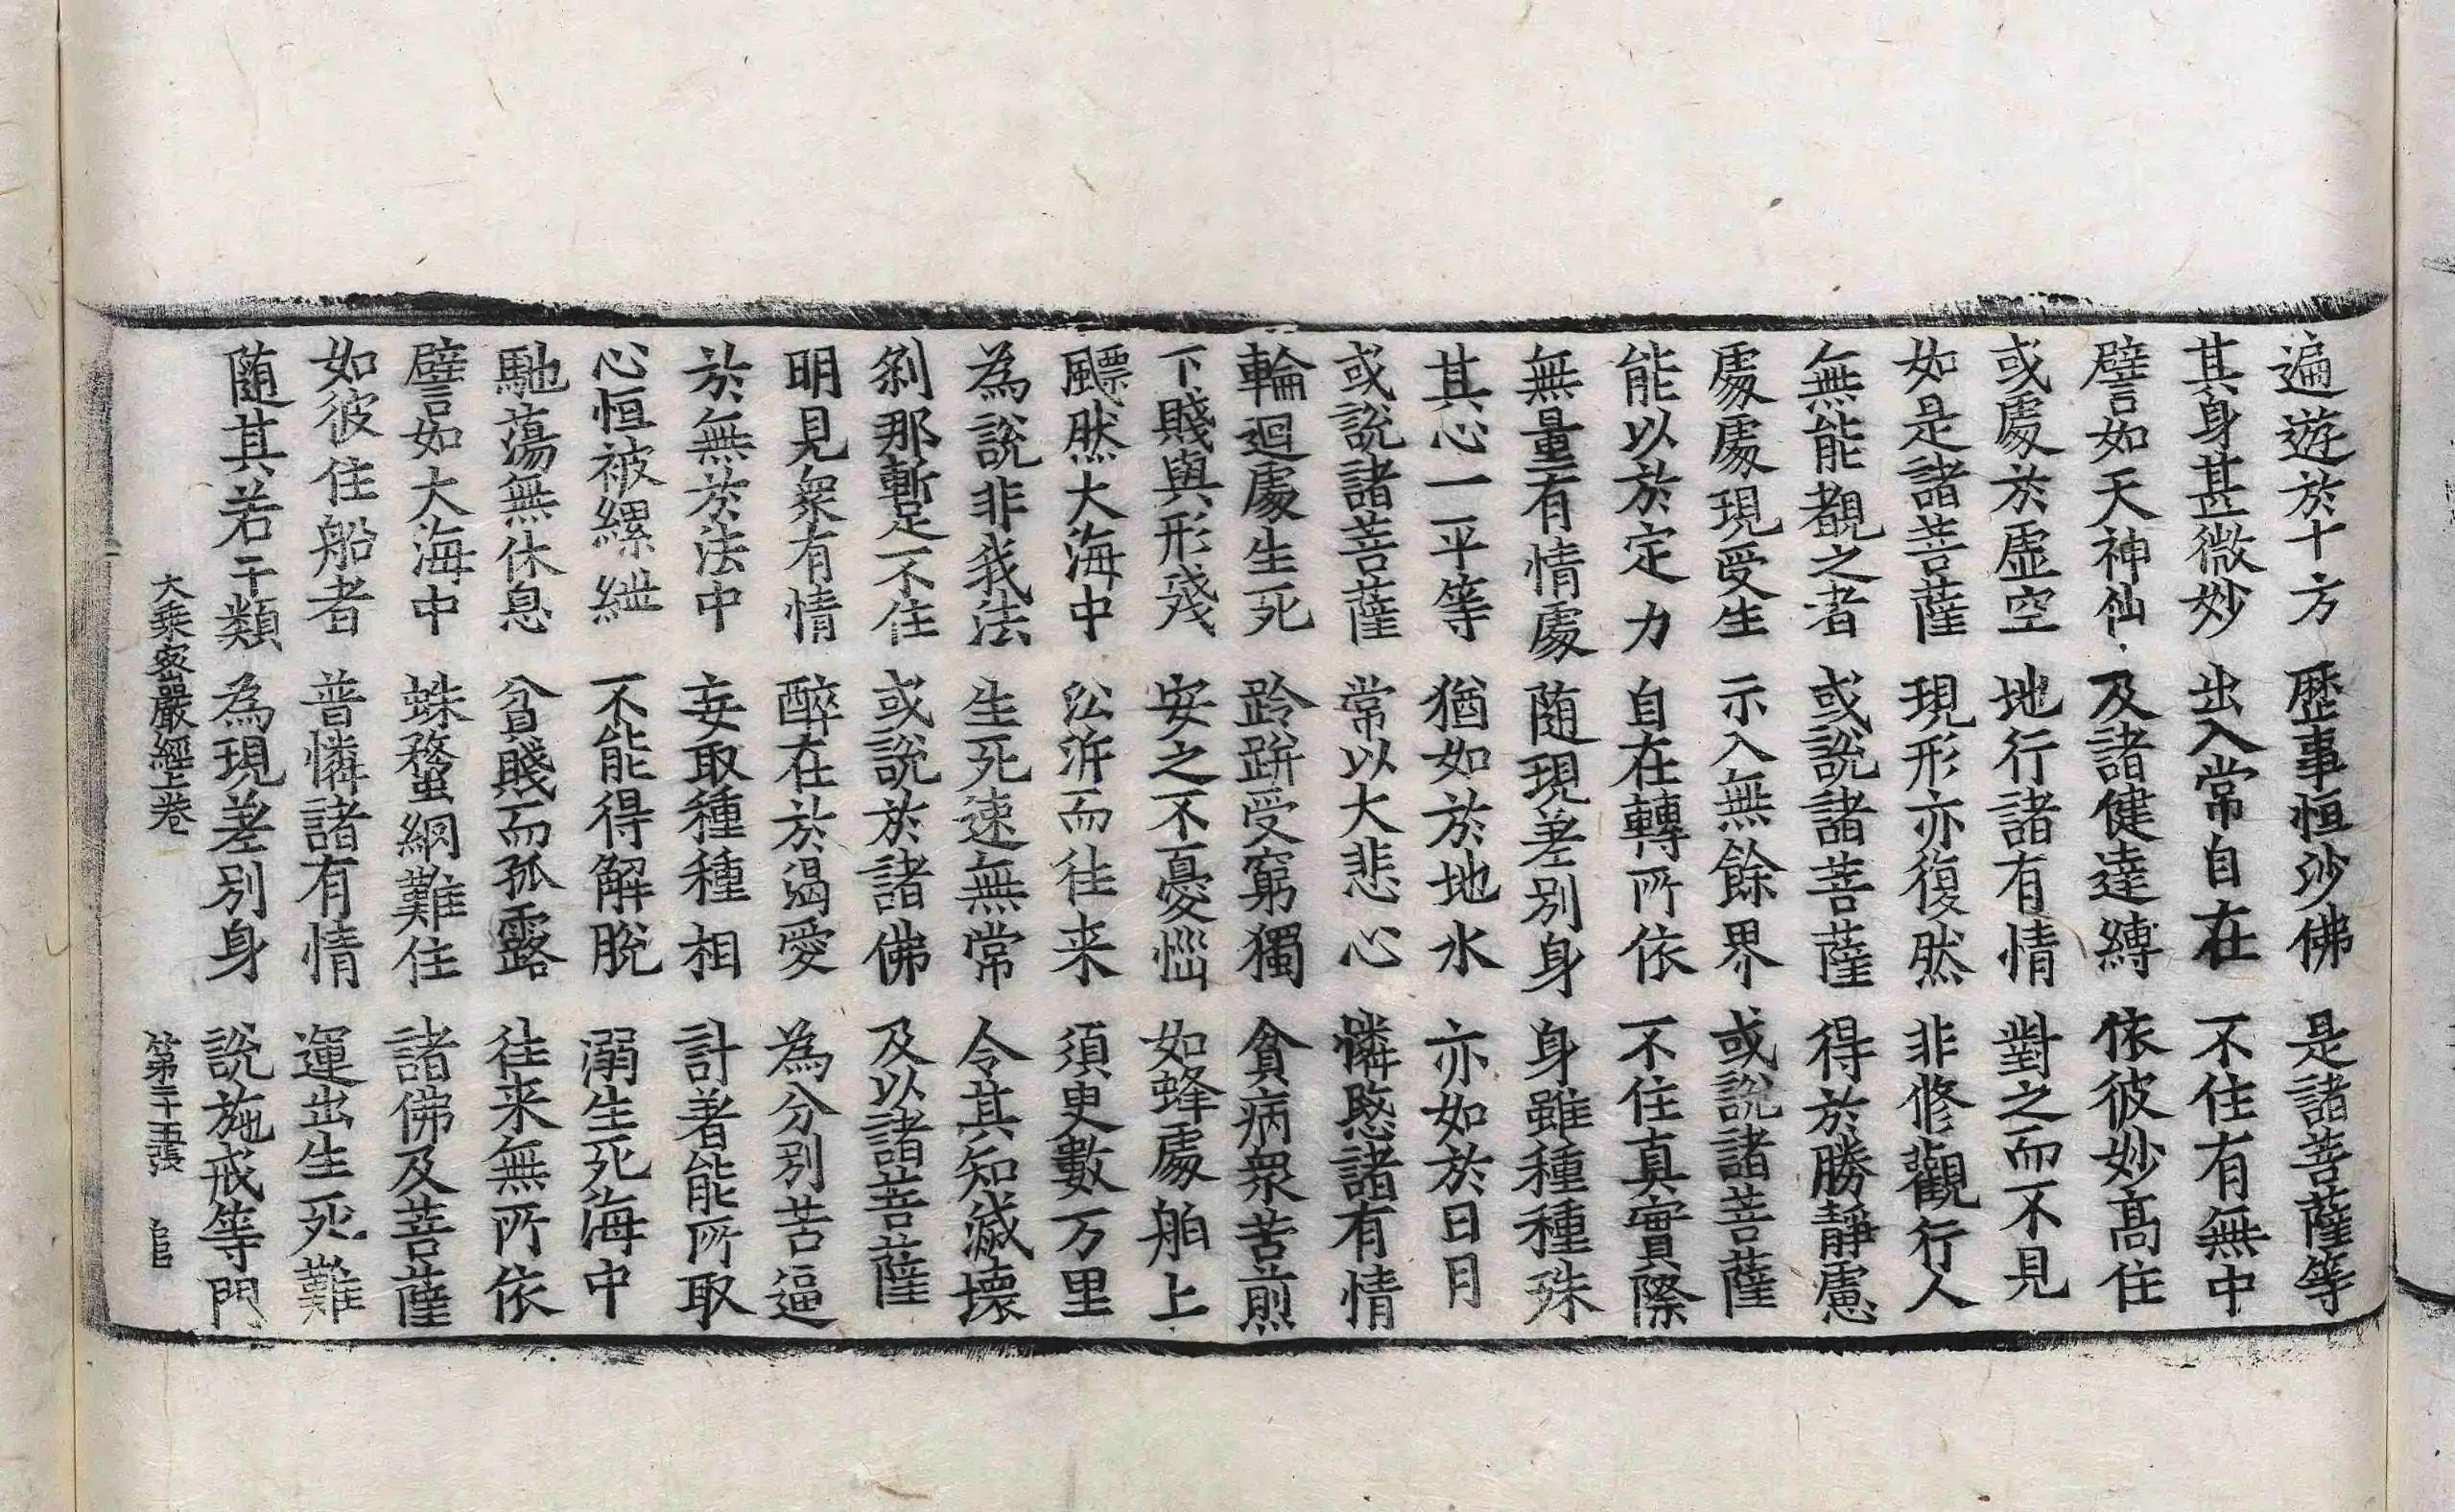 遍遊於十方　歷事恒沙佛　是諸菩薩等
其身甚微妙　出入常自在　不住有無中
譬如天神仙　及諸健達縛　依彼妙高住
或處於虛空　地行諸有情　對之而不見
如是諸菩薩　現形亦復然　非修觀行人
無能覩之者　或說諸菩薩　得於勝靜慮
處處現受生　示入無餘界　或說諸菩薩
能以於定力　自在轉所依　不住真實際
無量有情處　随現差別身　身雖種種殊
其心一平等　猶如於地水　亦如於日月
或說諸菩薩　常以大悲心　憐愍諸有情
輪迴處生死　跉跰受窮獨　貧病衆苦煎
下賤與形殘　安之不憂惱　如蜂處舶上
飄然大海中　㳂泝而往来　須臾數万里
為說非我法　生死速無常　令其知滅壞
剎那暫不住　或說於諸佛　及以諸菩薩
明見衆有情　醉在於渴愛　為分別苦逼
於無於法中　妄取種種相　計著能所取
心恒被縲紲　不能得解脫　溺生死海中
馳蕩無休息　貧賤而孤露　往来無所依
譬如大海中　蛛蝥網難住　諸佛及菩薩
如彼住船者　普憐諸有情　運出生死難
随其若干類　為現差別身　說施戒等門
大乘密嚴經上卷　第二十五張